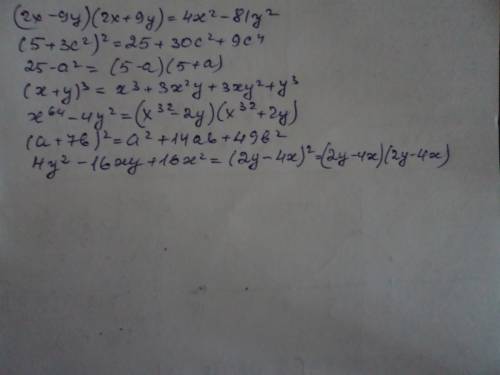 (2x-9y)(2x+9y)=4x²-81y²
(5+3c²)²=25+30c²+9c⁴
25-a²=(5-a)(5+a)
(x+y)³=x³+3x²y+3xy²+y³
x⁶⁴-4y²=(x³²-2y)(x³²+2y)
(a+7b)²=a²+14ab+49b²
4y²-16xy+16x²=(2y-4x)²=(2y-4x)(2y-4x)